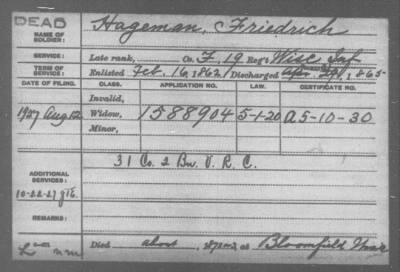 DEAD
NAME OF SOLDIER: Hageman, Friedrich
SERVICE: Late rank, Co. F, 19 Reg't Wisc Inf
TERM OF SERVICE: Enlisted Feb. 16, 1862 Discharged Apr. 29, 1865
DATE OF FILING. CLASS. APPLICATION NO. LAW. CERTIFICATE NO.
Invalid,
1927 Aug 12 Widow, 1588904 5-1-20 A 5-10-30
Minor,
31 Co. 2 Bn. V. R. C.
ADDITIONAL SERVICES:
10-22-27
REMARKS:
Died about, at Bloomfield